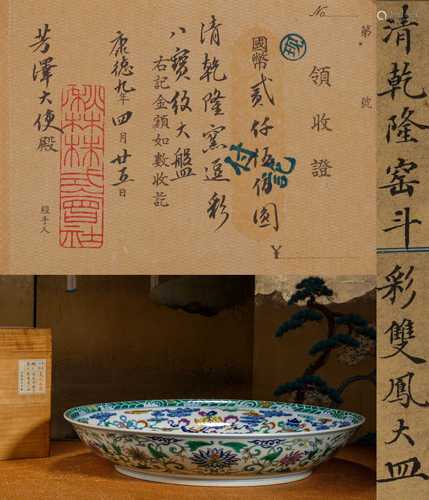 No.
第 號
領收證
國幣貳仟伍佰圓
付訖
¥
清乾隆窯逗彩
八寶紋大盤
右記金額如數收訖
康德九年四月廿五日
芳澤大使殿
經手人
清乾隆窑斗彩雙鳳大皿